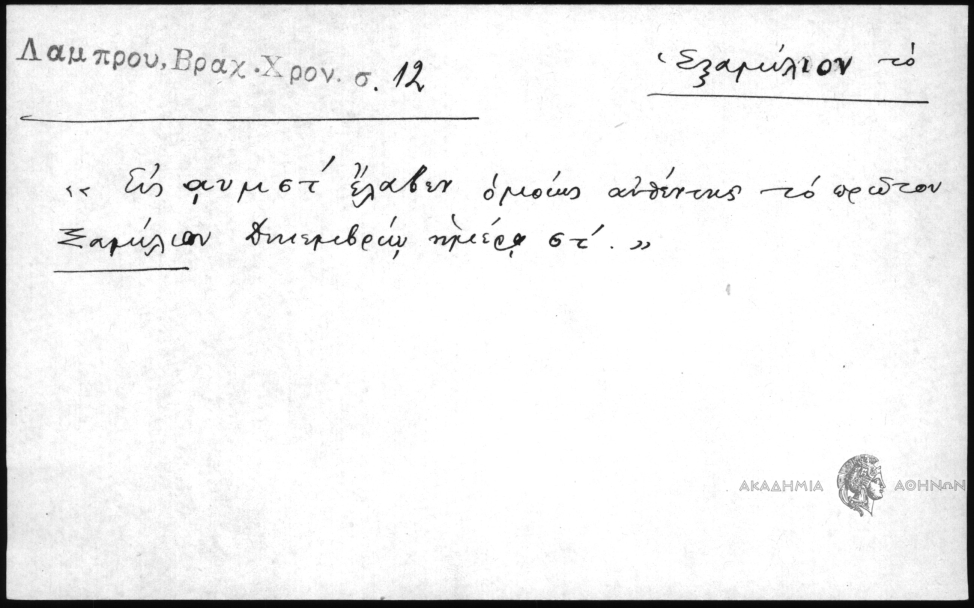 Λαμπρου, Βραχ. Χρον. σ. 12
Ἑξαμίλιον τό
“ Εἰς αυμστ´ ἔλαβεν ὁμοίως αὐθέντης τό πρῶτον
Ξαμίλιον Δεκεμβρίῳ ἡμέρᾳ στ´. „
ΑΚΑΔΗΜΙΑ ΑΘΗΝΩΝ